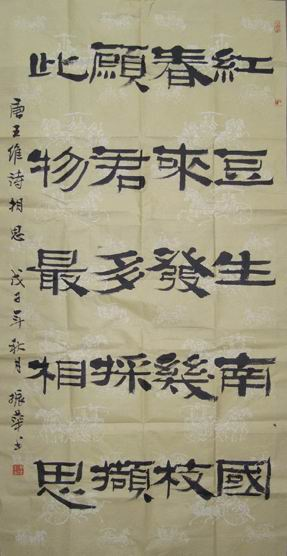 紅豆生南國
春來發幾枝
願君多採擷
此物最相思
唐王維詩相思 戊子年秋月 振華書